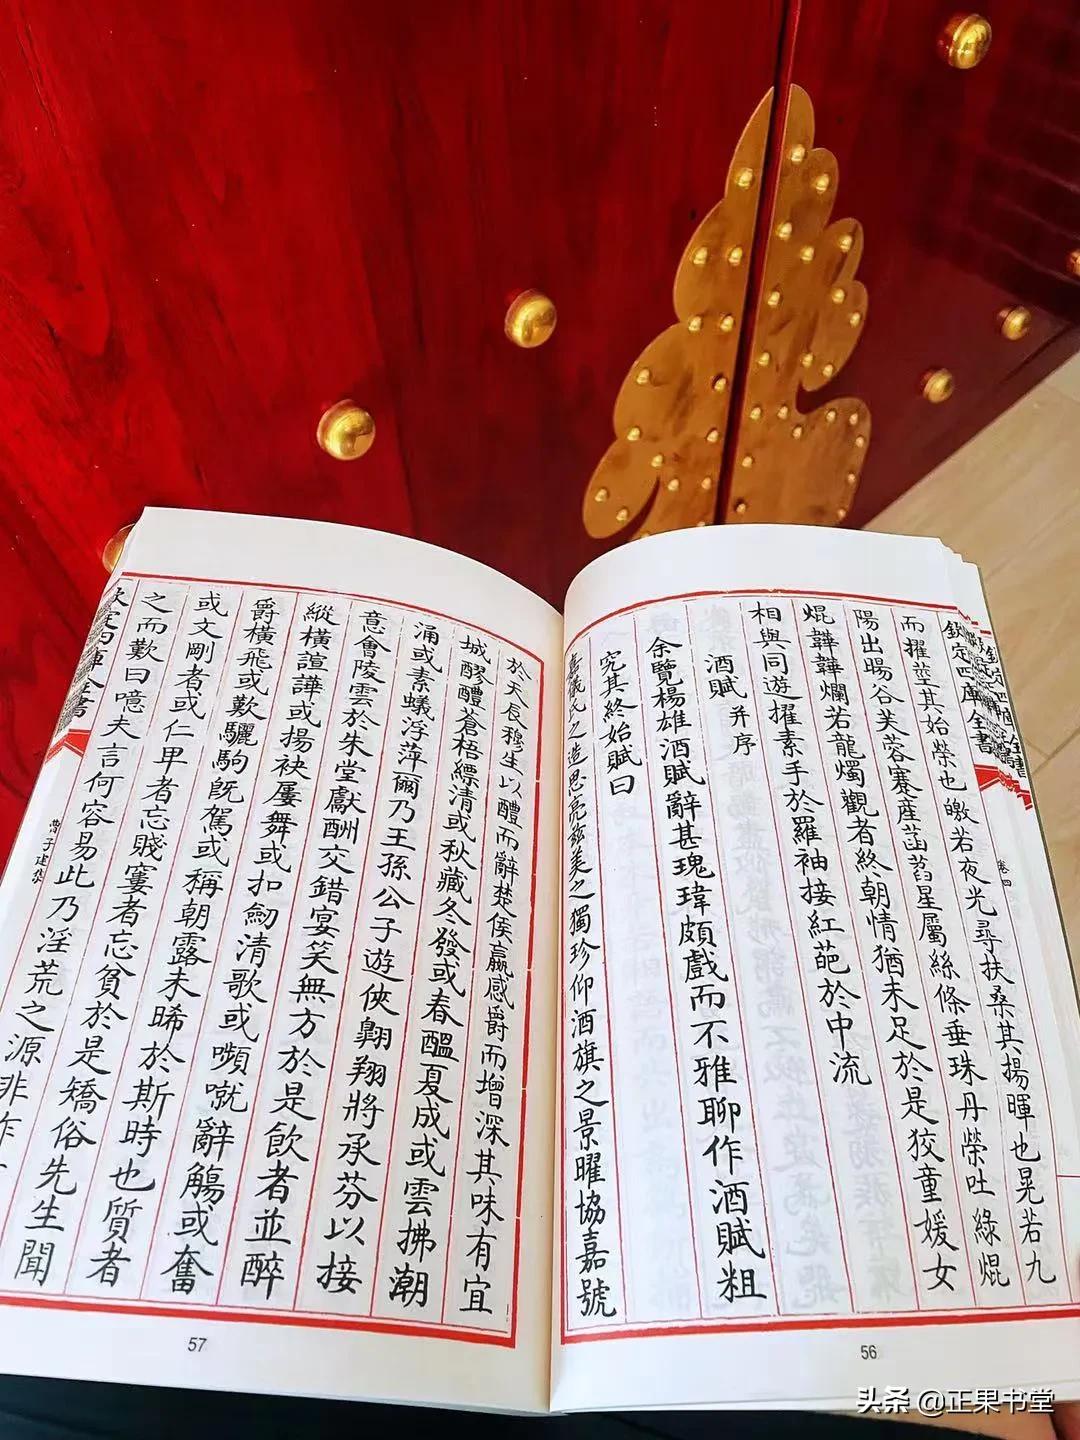 欽定四庫全書
卷四
而擢莖其始榮也皦若夜光尋扶桑其揚暉也晃若九
陽出暘谷芙蓉蹇産菡萏星屬絲條垂珠丹榮吐綠焜
焜韡韡爛若龍燭觀者終朝情猶未足於是狡童媛女
相與同遊擢素手於羅袖接紅葩於中流
酒賦并序
余覽楊雄酒賦辭甚瑰瑋頗戲而不雅聊作酒賦粗
究其終始賦曰
嘉儀氏之造思亮茲美之獨珍仰酒旗之景曜協嘉號
56
於天辰穆生以醴而辭楚侯嬴感爵而增深其味有宜
城醪醴蒼梧縹清或秋藏冬發或春醞夏成或雲拂潮
涌或素蟻浮萍爾乃王孫公子遊俠翺翔將承芬以接
意會陵雲於朱堂獻酬交錯宴笑無方於是飲者並醉
縱橫諠譁或揚袂屢舞或扣劒清歌或嚬蹴辭觴或奮
爵橫飛或歎驪駒既駕或稱朝露未晞於斯時也質者
或文剛者或仁卑者忘賤窶者忘貧於是矯俗先生聞
之而歎曰噫夫言何容易此乃淫荒之源非作
欽定四庫全書
曹子建集
57
头条 @正果书堂